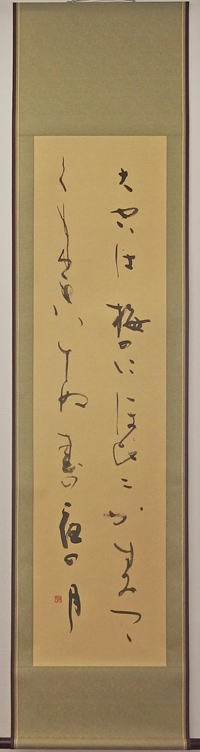 大空は梅のにほひにかすみつゝ
くもりもはてぬ春の夜の月